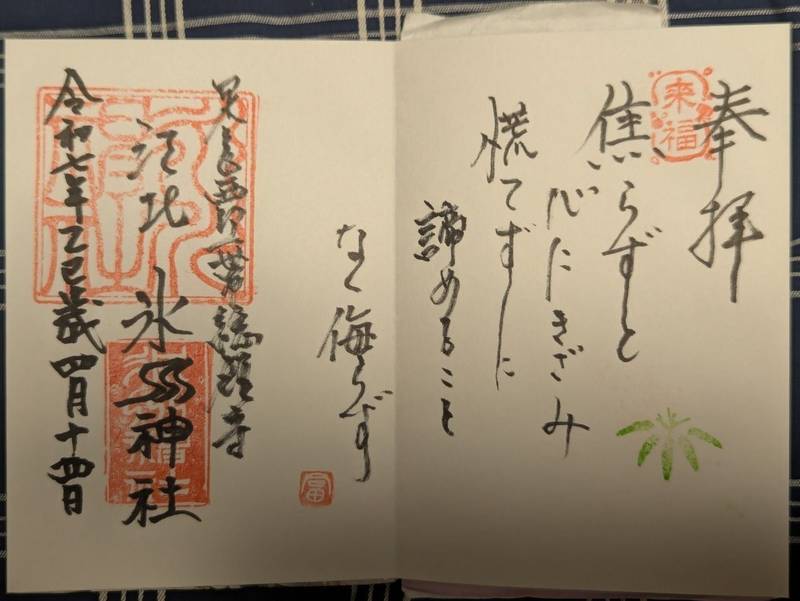 奉拝
来福
焦らずと
心にきざみ
慌てずに
諦めること
なく侮らず
富
江北 氷川神社
令和七年乙巳歳四月十四日